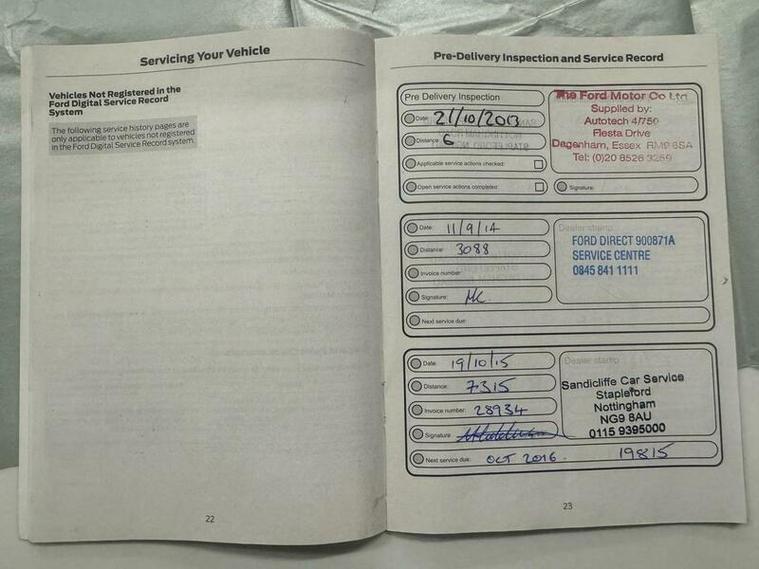 Servicing Your Vehicle
Vehicles Not Registered in the
Ford Digital Service Record
System
The following service history pages are
only applicable to vehicles not registered
in the Ford Digital Service Record system.
22
Pre-Delivery Inspection and Service Record
Pre Delivery Inspection
Date: 21/10/2013
Distance: 6
Applicable service actions checked:
Open service actions completed:
The Ford Motor Co Ltd
Supplied by:
Autotech 4/750
Fiesta Drive
Dagenham, Essex RM9 6SA
Tel: (0)20 8526 3259
Signature:
Date: 11/9/14
Distance: 3088
Invoice number:
Signature:
Next service due:
Dealer stamp
FORD DIRECT 900871A
SERVICE CENTRE
0845 841 1111
Date: 19/10/15
Distance: 7315
Invoice number: 28934
Signature:
Next service due: OCT 2016. 19815
Dealer stamp
Sandicliffe Car Service
Stapleford
Nottingham
NG9 8AU
0115 9395000
23